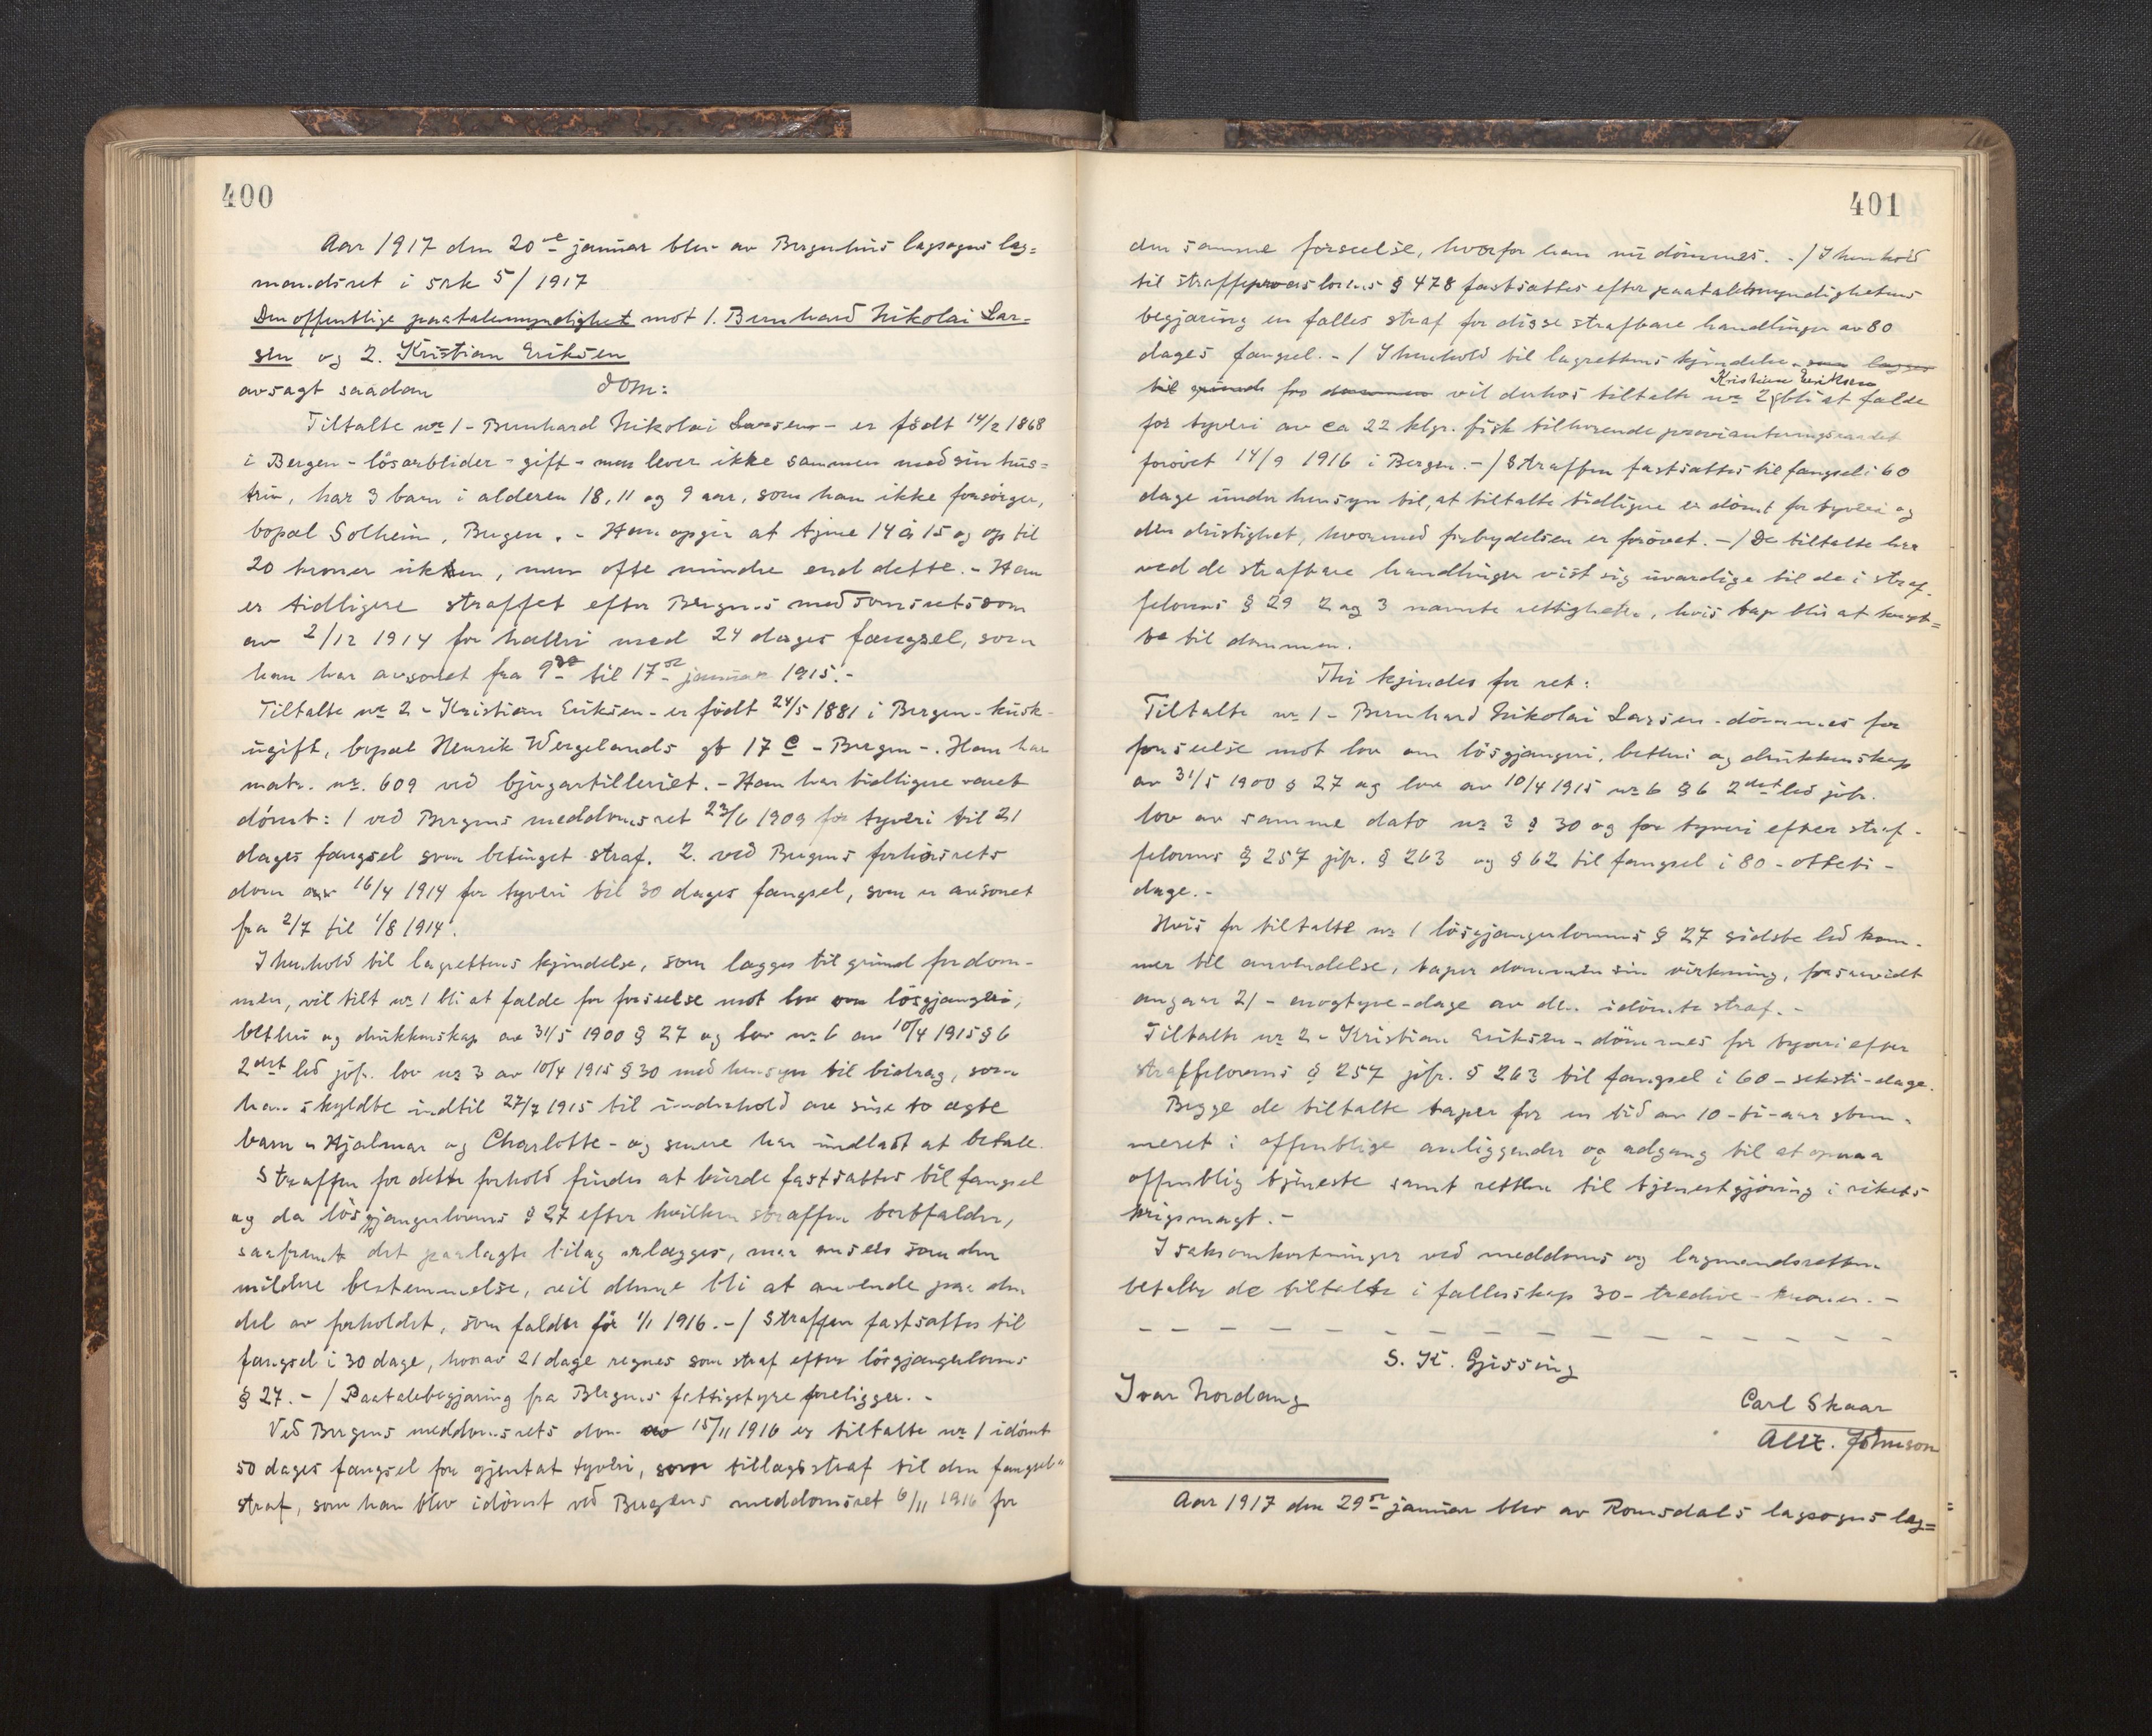 400
Aar 1917 den 20de januar blev av Bergenhus lagsogns lag=
mandsret i sak 5/1917
Den offentlige paatalemyndighet mot 1. Bernhard Nikolai Lar=
sen og 2. Kristian Eriksen
avsagt saadan dom:
Tiltalte nr 1 - Bernhard Nikolai Larsen - er födt 14/2 1868
i Bergen - lösarbeider - gift - men lever ikke sammen med sin hus=
tru, har 3 barn i alderen 18, 11 og 9 aar, som han ikke forsörger,
bopæl Solheim, Bergen. - Han opgir at tjene 14 à 15 og op til
20 kroner uken, men ofte mindre end dette. - Han
er tidligere straffet efter Bergens meddomsretsdom
av 2/12 1914 for hæleri med 24 dages fængsel, som
han har avsonet fra 9de til 17de januar 1915. -
Tiltalte nr 2 - Kristian Eriksen - er födt 24/5 1881 i Bergen - kusk -
ugift, bopæl Henrik Wergelands gt 17 c - Bergen -. Han har
matr. nr. 609 ved bjergartilleriet. - Han har tidligere været
dömt: 1 ved Bergens meddomsret 23/6 1909 for tyveri til 21
dages fængsel som betinget straf. 2. ved Bergens forhörsrets
dom av 16/4 1914 for tyveri til 30 dages fængsel, som er avsonet
fra 2/7 til 1/8 1914.
I henhold til lagrettens kjendelse, som lægges til grund for dom-
men, vil tilt nr 1 bli at fælde for forseelse mot lov om lösgjængeri,
betleri og drukkenskap av 31/5 1900 § 27 og lov nr 6 av 10/4 1915 § 6
2det led jöfr. lov nr 3 av 10/4 1915 § 30 med hensyn til bidrag, som
han skyldte indtil 27/7 1915 til underhold av sine to egte
barn - Hjalmar og Charlotte - og senere har undlatt at betale.
Straffen for dette forhold findes at burde fastsættes til fængsel
og da lösgjængerlovens § 27 efter hvilken straffen bortfalder,
saafremt det paalagte bilag erlægges, maa ansees som den
mildere bestemmelse, vil denne bli at anvende paa den
del av forholdet, som falder för 1/1 1916. - / Straffen fastsættes til
fængsel i 30 dage, hvorav 21 dage regnes som straf efter lösgjængerlovens
§ 27. - / Paatalebegjæring fra Bergens fattigstyre foreligger. -
Ved Bergens meddomsrets dom av 15/11 1916 er tiltalte nr 1 idömt
50 dages fængsel for gjentat tyveri, som tillægsstraf til den fængsels
straf, som han blev idömt ved Bergens meddomsret 6/11 1916 for
401
den samme forseelse, hvorfor han nu dömmes. - / I henhold
til straffeproceslovens § 478 fastsættes efter paatalemyndighetens
begjæring en fælles straf for disse strafbare handlinger av 80
dages fængsel. - / I henhold til lagrettens kjendelse, som lægges
til grund for dommen vil derhos tiltalte nr 2 Kristian Eriksen bli at fælde
for tyveri av ca 22 klgr. fisk tilhörende provianteringsraadet
forövet 14/9 1916 i Bergen. - / Straffen fastsættes til fængsel i 60
dage under hensyn til, at tiltalte tidligere er dömt for tyveri og
den dristighet, hvormed forbrydelsen er forövet. - / De tiltalte har
ved de strafbare handlinger vist sig uværdige til de i straf-
felovens § 29 2 og 3 nævnte rettigheter, hvis tap blir at knyt=
te til dommen.
Thi kjendes for ret:
Tiltalte nr 1 - Bernhard Nikolai Larsen - dömmes for
forseelse mot lov om lösgjængeri, betleri og drukkenskap
av 31/5 1900 § 27 og lov av 10/4 1915 nr 6 § 6 2det led jöfr.
lov av samme dato nr 3 § 30 og for tyveri efter straf-
felovens § 257 jfr. § 263 og § 62 til fængsel i 80 - otteti -
dage. -
Hvis for tiltalte nr 1 lösgjængerlovens § 27 sidste led kom-
mer til anvendelse, taper dommen sin virkning, forsaavidt
angaar 21 - enogtyve - dage av den idömte straf. -
Tiltalte nr 2 - Kristian Eriksen - dömmes for tyveri efter
straffelovens § 257 jfr. § 263 til fængsel i 60 - seksti - dage.
Begge de tiltalte taper for en tid av 10 - ti - aar stem-
meret i offentlige anliggender og adgang til at opnaa
offentlig tjeneste samt retten til tjenestgjöring i rikets
krigsmagt. -
I saksomkostninger ved meddoms og lagmandsretten
betaler de tiltalte i fællesskap 30 - tredive - kroner. -
S. K. Gjessing
Ivar Nordang
Carl Skaar
Alex. Johnson
Aar 1917 den 29de januar blev av Romsdals lagsogns lag=